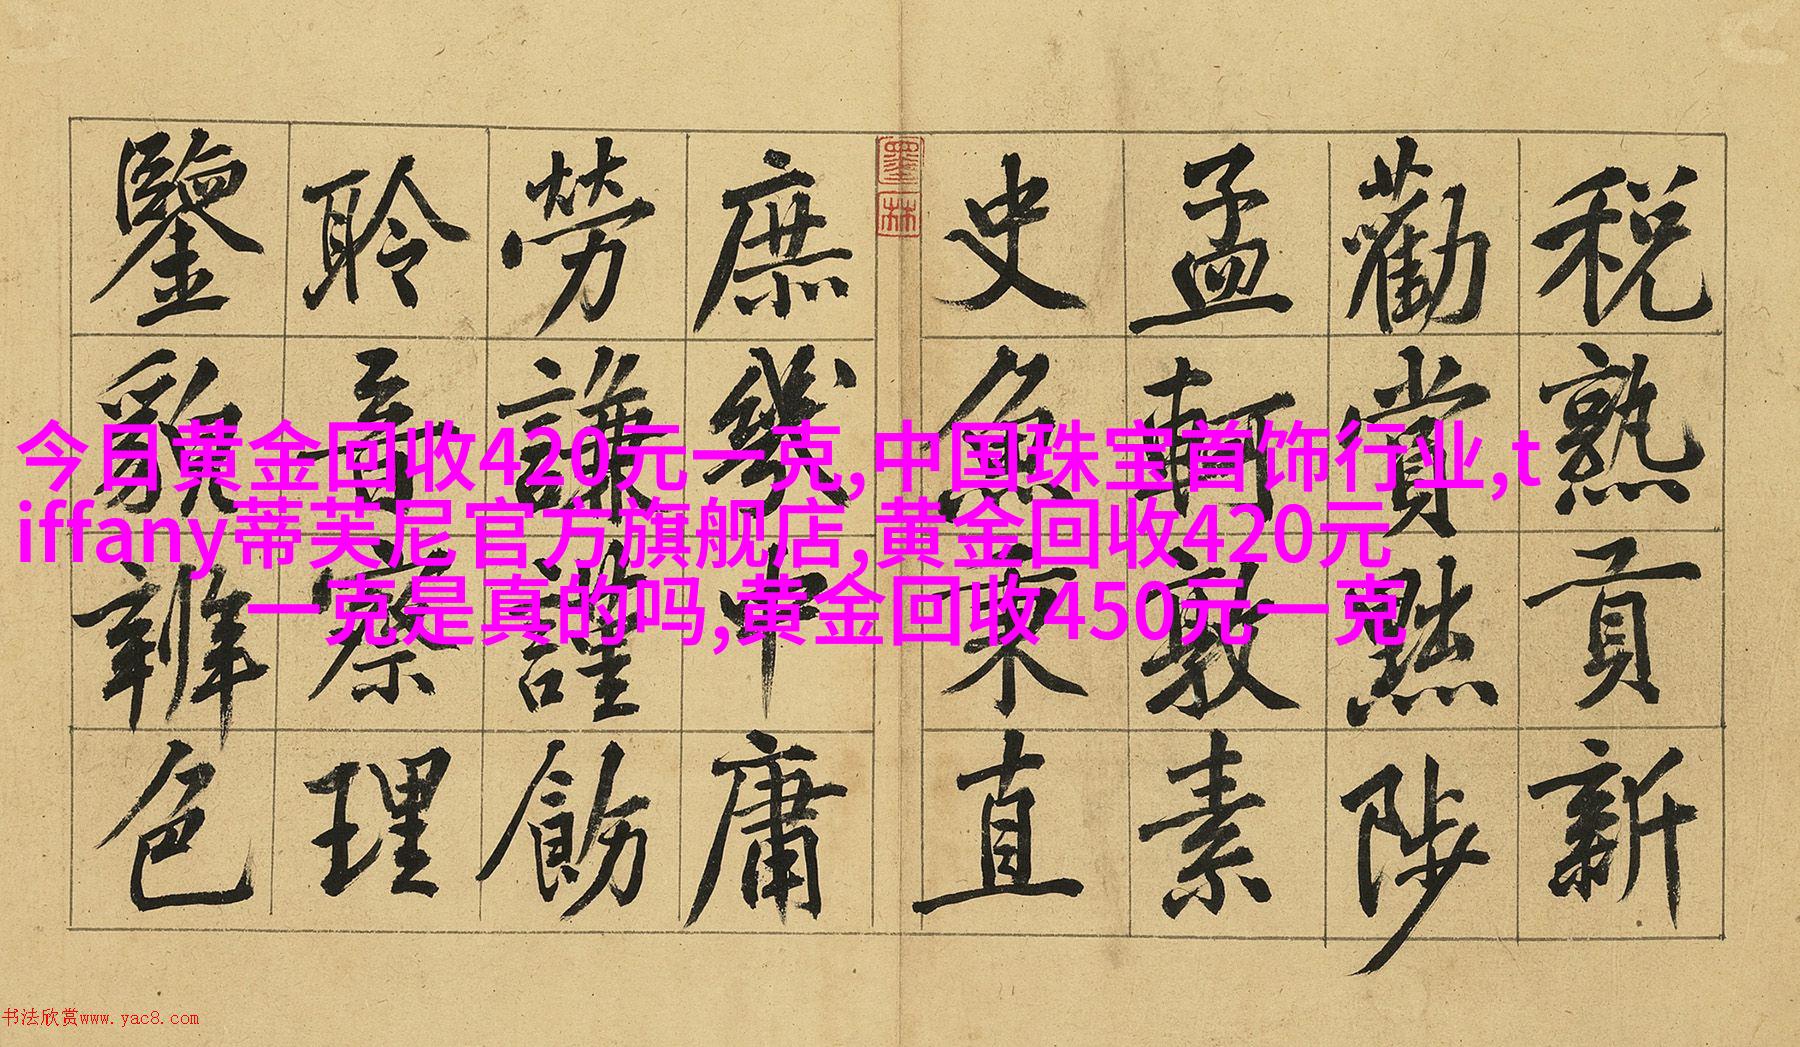 税熟貢新
勸賞黜陟
孟軻敦素
史魚秉直
墨林
庶幾中庸
勞謙謹飭
聆音察理
鑒貌辨色
今日黄金回收420元一克,中国珠宝首饰行业,t
iffany蒂芙尼官方旗舰店,黄金回收420元
一克是真的吗,黄金回收450元一克
书法欣赏www.yac8.com